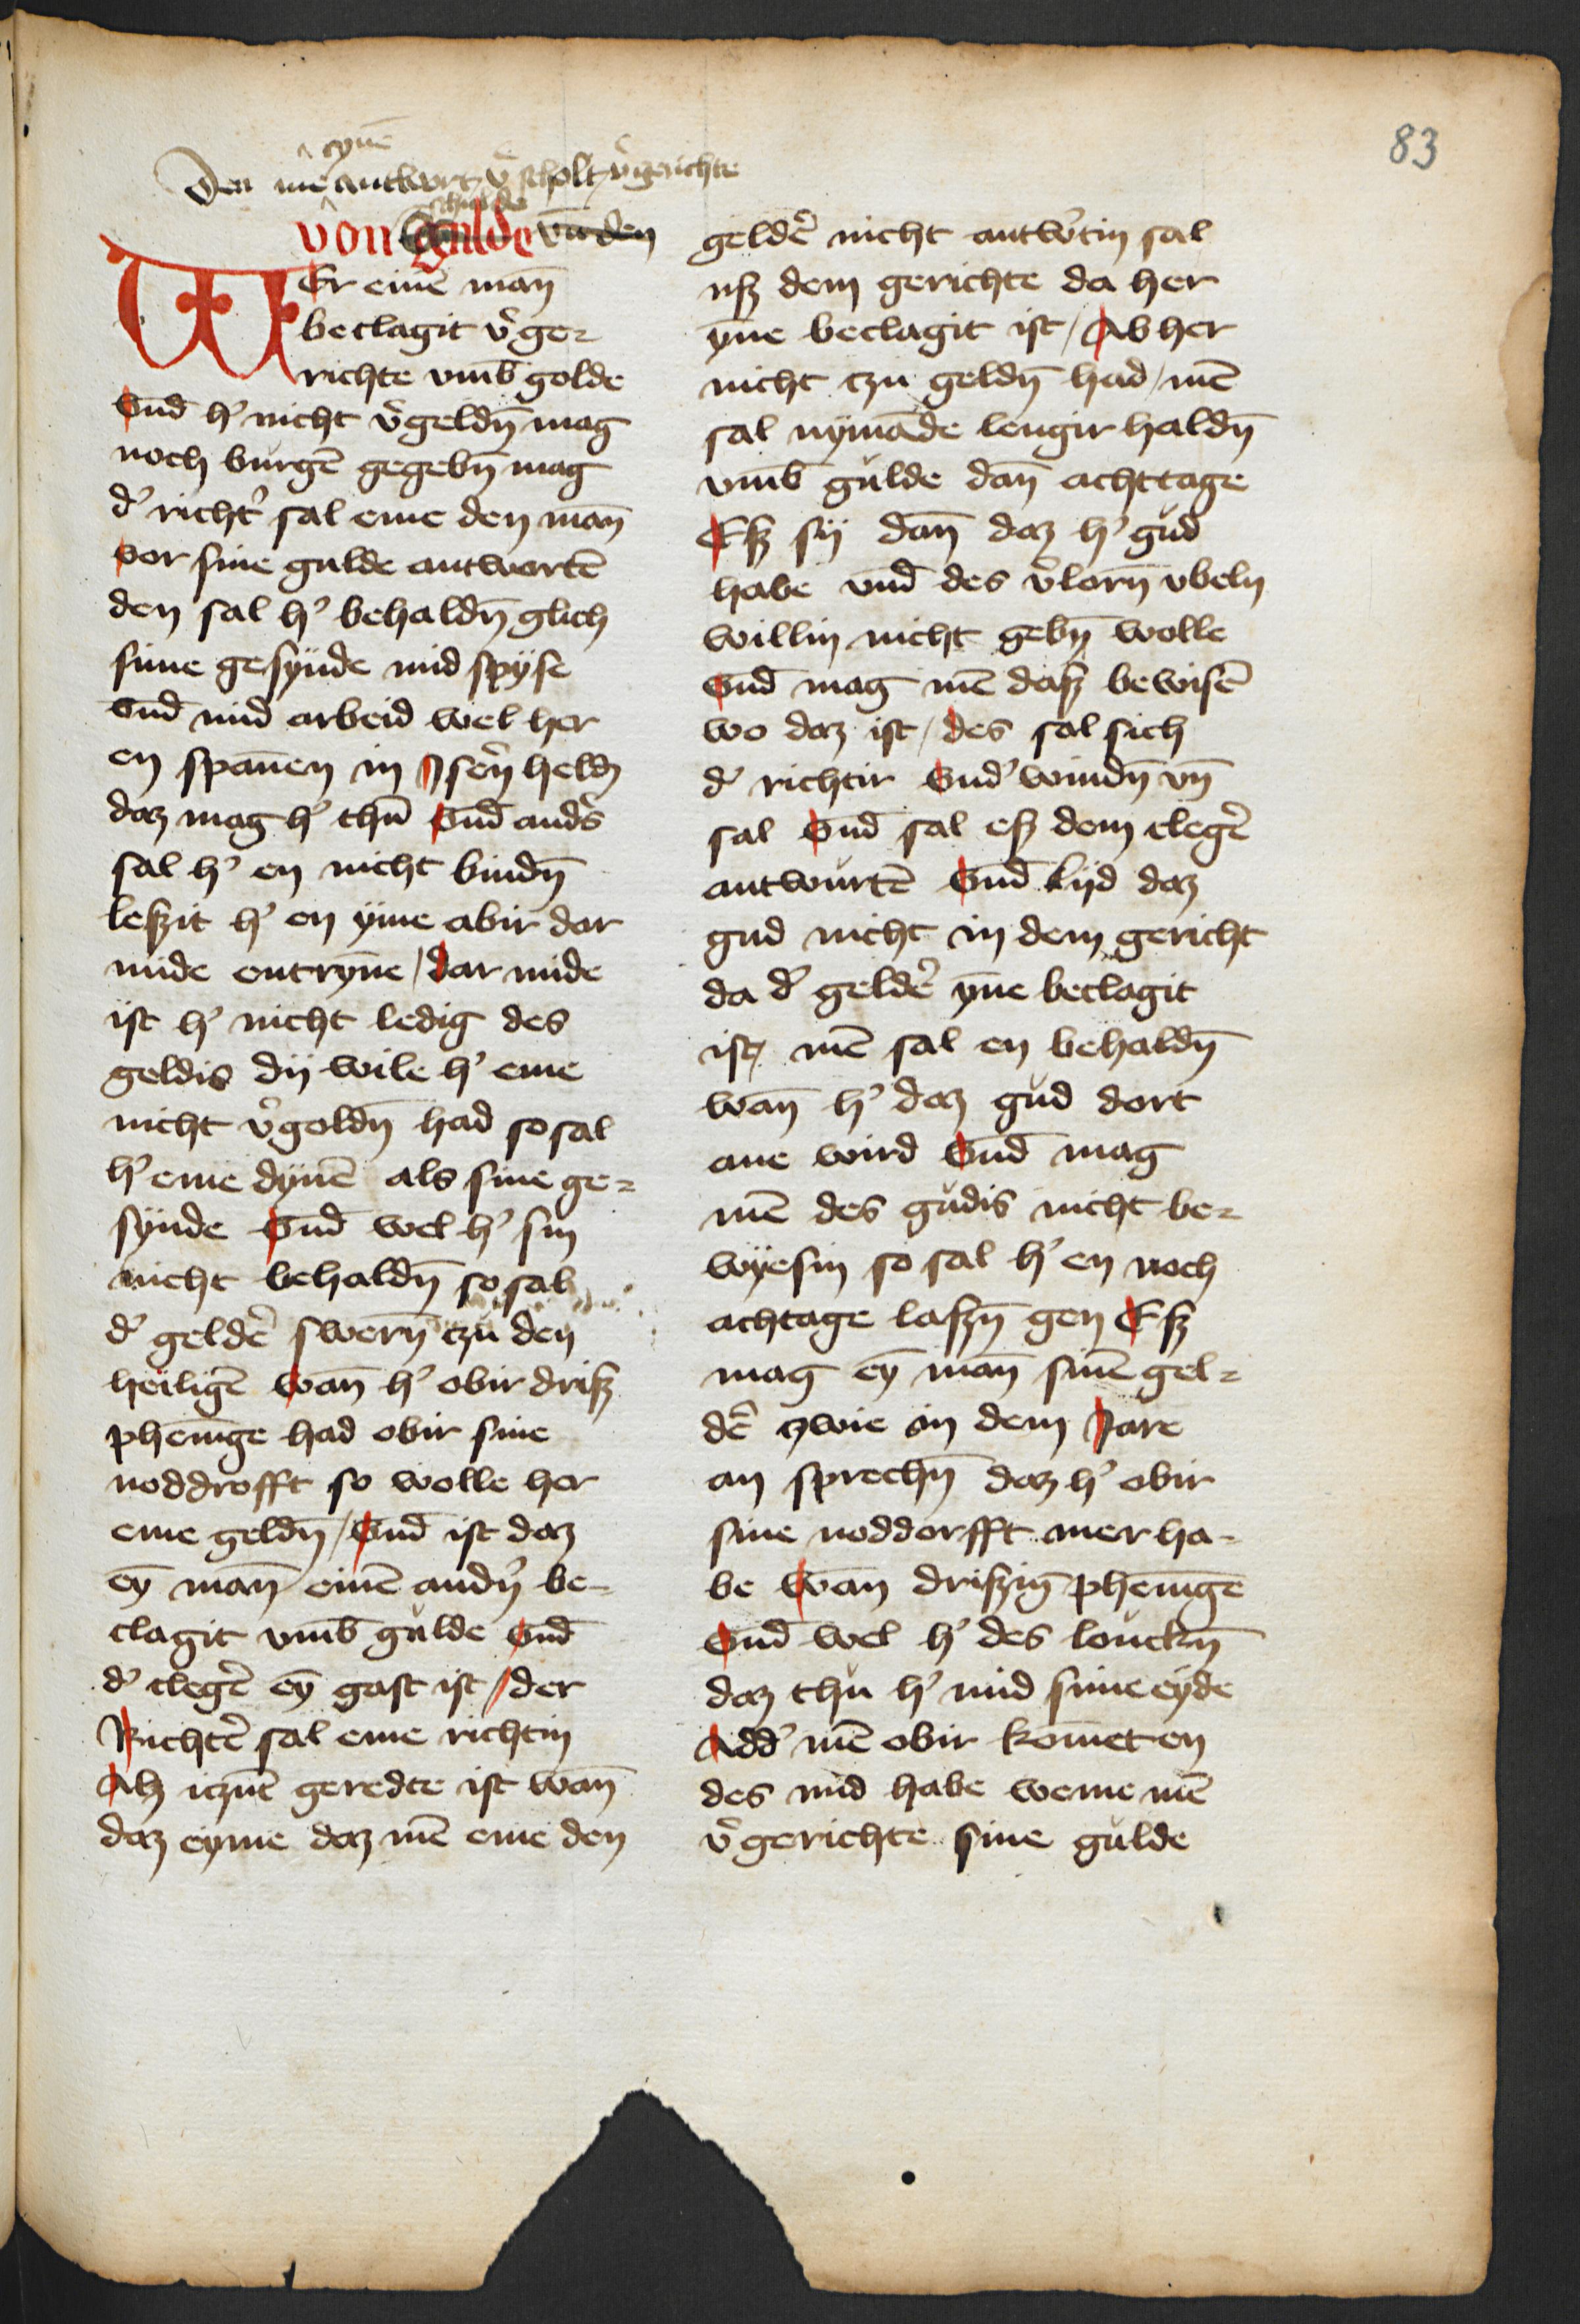 83
eynē
Den mē antwort v̉ scholt v̉ gerichte
schulde
von gulde vn̄ den
WEr einē man̄
beclagit v̉ ge-
richte vmb̄ golde
Vnd̄ h' nicht v̉geldn̄ mag
noch burgē gegebn̄ mag
d' richt' sal eme den man̄
vor sine gulde antwortē
den sal h' behaldn̄ glich
sime gesynde mid spyse
Vnd̄ mid arbeid wel her
en span̄en in Jsern̄ heldn
daz mag h' thu̅ Vnd̄ anders
sal h' en nicht bindn̄
leszit h' en yme abir dar
mide entryn̄e / dar mide
ist h' nicht ledig des
geldis dij wile h' eme
nicht v̉goldn̄ had so sal
h' eme dynē als sime ge-
synde Vnd̄ wel h' sin
nicht behaldn̄ so sal
d' geldē swern̄ czu den
heiligē wan̄ h' obir drisz
phenīge had obir sine
noddrofft so wolle her
eme geldn̄ / Vnd̄ ist daz
ey̅ man̄ einē andn̄ be-
clagit vmb̄ gulde Vnd̄
d' clegē ey̅ gast ist / der
Richtē sal eme richtin
Alz iczūt geredte ist wan̄
daz eyme daz mē eme den
geldē nicht antw̉tin sal
vsz dem gerichte da her
yn̄e beclagit ist / Ab her
nicht czu geldn̄ had / mē
sal nymāde lengir haldn̄
vmb̄ gulde dan̄ achttage
Esz sij dan̄ daz h' gud
habe vnd̄ des v̉lorn̄ vbeln
willin nicht gebn̄ wolle
Vnd̄ mag mē dasz bewisē
wo daz ist / des sal sich
d' richtir Vnd' windn̄ vn̄
sal Vnd̄ sal esz dem clegē
antwurtē Vnd̄ lijd daz
gud nicht in dem gericht
da d' geldē yn̄e beclagit
ist / mē sal en behaldn̄
wan̄ h' daz gud dort
ane wird Vnd̄ mag
mē des gudis nicht be-
wyesin so sal h' en noch
achtage laszn̄ gen Esz
mag ey̅ man̄ sinē gel-
dē zwie in dem Jare
an sprechn̄ daz h' obir
sine noddorfft mer ha-
be wan̄ driszig̅ phenīge
Vnd̄ wel h' des louckn̄
daz thu h' mid sime eyde
Add' mē obir komet en
des mid habe weme mē
v̉ gerichte sine gulde